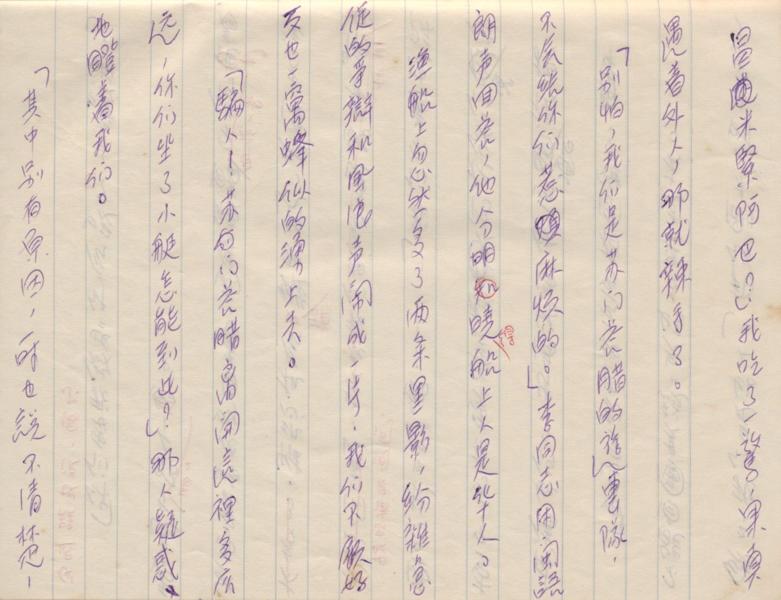 冒 米黎阿也？」我吃了一驚：果真
遇着外人，那就辣手了。
「别怕，我们是苏门答腊的 隊，
不会給你们惹 麻烦的。」李同志用闽語
朗声回答，他分明 曉船上人是华人。
渔船上忽然 了两条黑影，纷雜急
促的爭辯和風浪声闹成一片，我们不顾好
歹也一窩蜂似的湧上去。
「騙人！苏门答腊离開這裡多么
远，你们坐了小艇怎能到此？」那人疑惑
地瞪着我们。
「其中别有原因，一时也説不清楚—